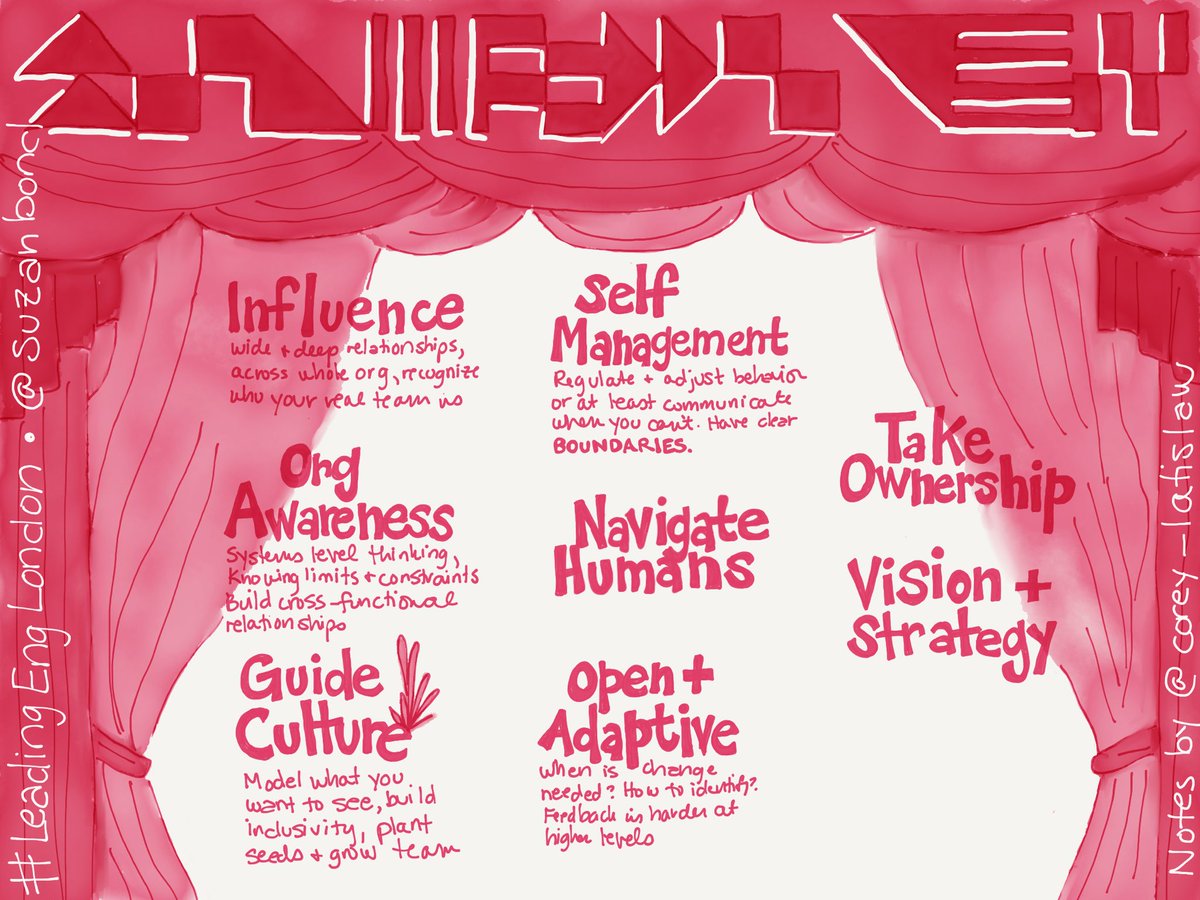 #Leading Eng London • @suzanbond
Influence
wide + deep relationships,
across whole org, recognize
who your real team is
Org
Awareness
Systems level thinking,
Knowing limits + constraints
Build cross-functional
relationships
Guide
Culture
Model what you
want to see, build
inclusivity, plant
seeds + grow team
Self
Management
Regulate + adjust behavior
or at least communicate
when you can't. Have clear
BOUNDARIES.
Navigate
Humans
Open +
Adaptive
When is change
needed? How to identify?
Feedback is harder at
higher levels
Take
Ownership
Vision +
Strategy
Notes by @corey_latislaw